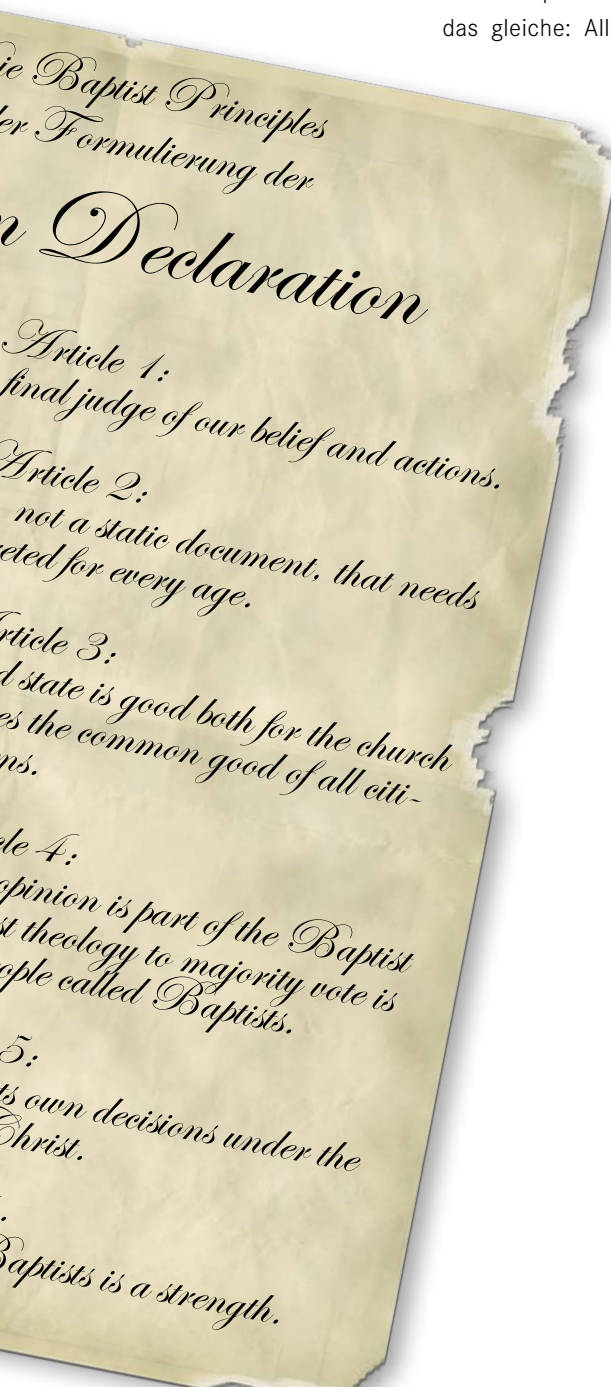 das gleiche: All
ie Baptist Principles
er Formulierung der
n Declaration
Article 1:
final judge of our belief and actions.
Article 2:
not a static document, that needs
eted for every age.
rticle 3:
d state is good both for the church
es the common good of all citi-
ns.
cle 4:
opinion is part of the Baptist
st theology to majority vote is
ople called Baptists.
5:
ts own decisions under the
Christ.
Baptists is a strength.